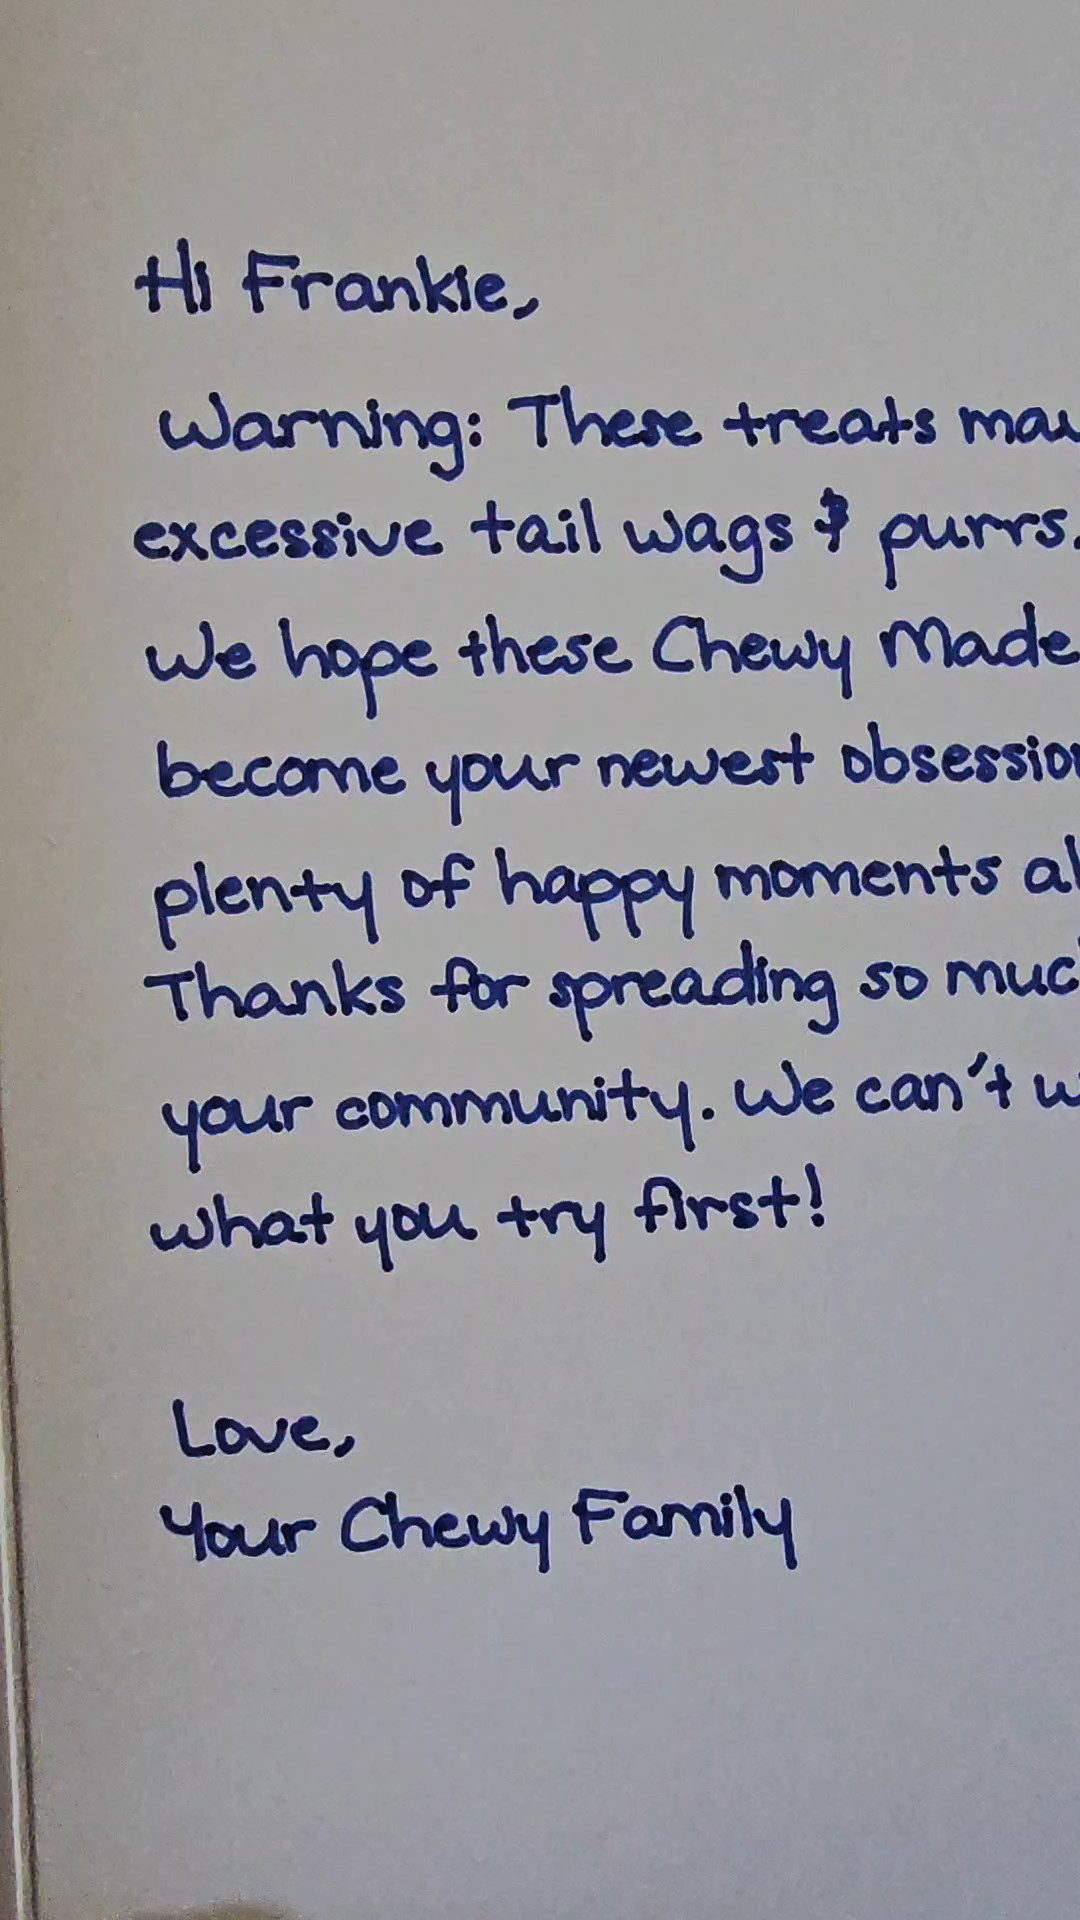 Hi Frankie,
Warning: These treats
excessive tail wags & purrs.
We hope these Chewy Made
become your newest
plenty of happy moments
Thanks for spreading so
your community. We can't
what you try first!
Love,
Your Chewy Family